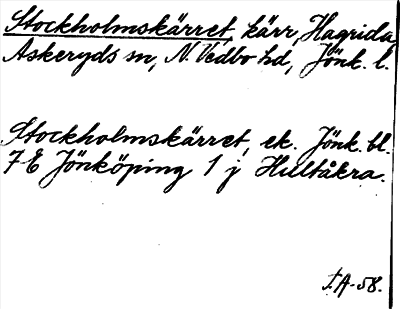 Stockholmskärret, kärr, Hagrida,
Askeryds sn, N. Vedbo hd, Jönk. l.
Stockholmskärret, ek. Jönk. bl.
7E Jönköping 1 j Hultåkra.
I.A-58.